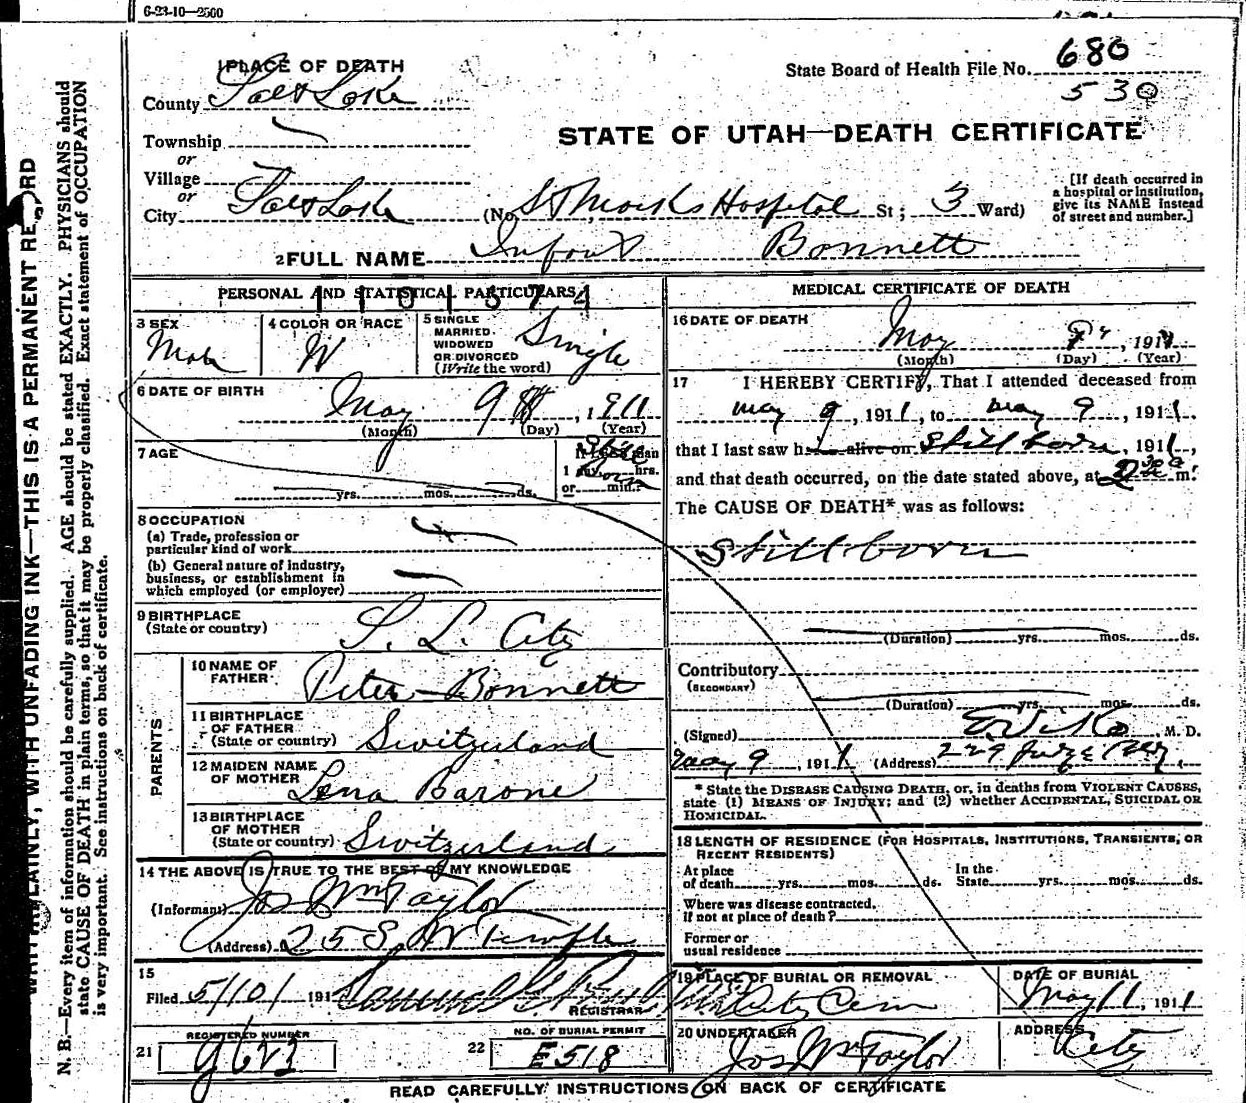 6-23-10—2500
1 PLACE OF DEATH
State Board of Health File No. 680
530
County Salt Lake
STATE OF UTAH—DEATH CERTIFICATE
Township
or
Village
or
City Salt Lake (No. St Marks Hospital St; 3 Ward)
[If death occurred in
a hospital or institution,
give its NAME instead
of street and number.]
2 FULL NAME Infant Bonnett
PERSONAL AND STATISTICAL PARTICULARS
3 SEX
Male
4 COLOR OR RACE
W
5 SINGLE
MARRIED.
WIDOWED
OR DIVORCED
(Write the word)
Single
6 DATE OF BIRTH
May 9 , 1911
(Month) (Day) (Year)
7 AGE
yrs. mos. ds.
1 day, hrs.
or min.?
8 OCCUPATION
(a) Trade, profession or
particular kind of work
(b) General nature of industry,
business, or establishment in
which employed (or employer)
9 BIRTHPLACE
(State or country)
S. L. City
PARENTS
10 NAME OF
FATHER
Peter Bonnett
11 BIRTHPLACE
OF FATHER
(State or country)
Switzerland
12 MAIDEN NAME
OF MOTHER
Lena Barone
13 BIRTHPLACE
OF MOTHER
(State or country)
Switzerland
14 THE ABOVE IS TRUE TO THE BEST OF MY KNOWLEDGE
(Informant) Jos Wm Taylor
(Address) 25 S. W Temple
15
Filed 5/10/ 191
REGISTRAR
REGISTERED NUMBER
21
NO. OF BURIAL PERMIT
22 E518
MEDICAL CERTIFICATE OF DEATH
16 DATE OF DEATH
May , 191
(Month) (Day) (Year)
17 I HEREBY CERTIFY, That I attended deceased from
May 9 , 1911, to May 9 , 1911
that I last saw h alive on Stillborn , 1911,
and that death occurred, on the date stated above, at m.
The CAUSE OF DEATH* was as follows:
Stillborn
(Duration) yrs. mos. ds.
Contributory
(SECONDARY)
(Duration) yrs. mos. ds.
(Signed) M. D.
May 9 , 1911 (Address) 229 Judge Bldg
* State the DISEASE CAUSING DEATH, or, in deaths from VIOLENT CAUSES,
state (1) MEANS OF INJURY; and (2) whether ACCIDENTAL, SUICIDAL OR
HOMICIDAL.
18 LENGTH OF RESIDENCE (FOR HOSPITALS, INSTITUTIONS, TRANSIENTS, OR
RECENT RESIDENTS)
At place
of death yrs. mos. ds.
In the
State yrs. mos. ds.
Where was disease contracted,
if not at place of death?
Former or
usual residence
19 PLACE OF BURIAL OR REMOVAL
City Cem
DATE OF BURIAL
May 11, 1911
20 UNDERTAKER
Jos Wm Taylor
ADDRESS
City
READ CAREFULLY INSTRUCTIONS ON BACK OF CERTIFICATE
WRITE PLAINLY, WITH UNFADING INK—THIS IS A PERMANENT RECORD
N. B.—Every item of information should be carefully supplied. AGE should be stated EXACTLY. PHYSICIANS should
state CAUSE OF DEATH in plain terms, so that it may be properly classified. Exact statement of OCCUPATION
is very important. See instructions on back of certificate.